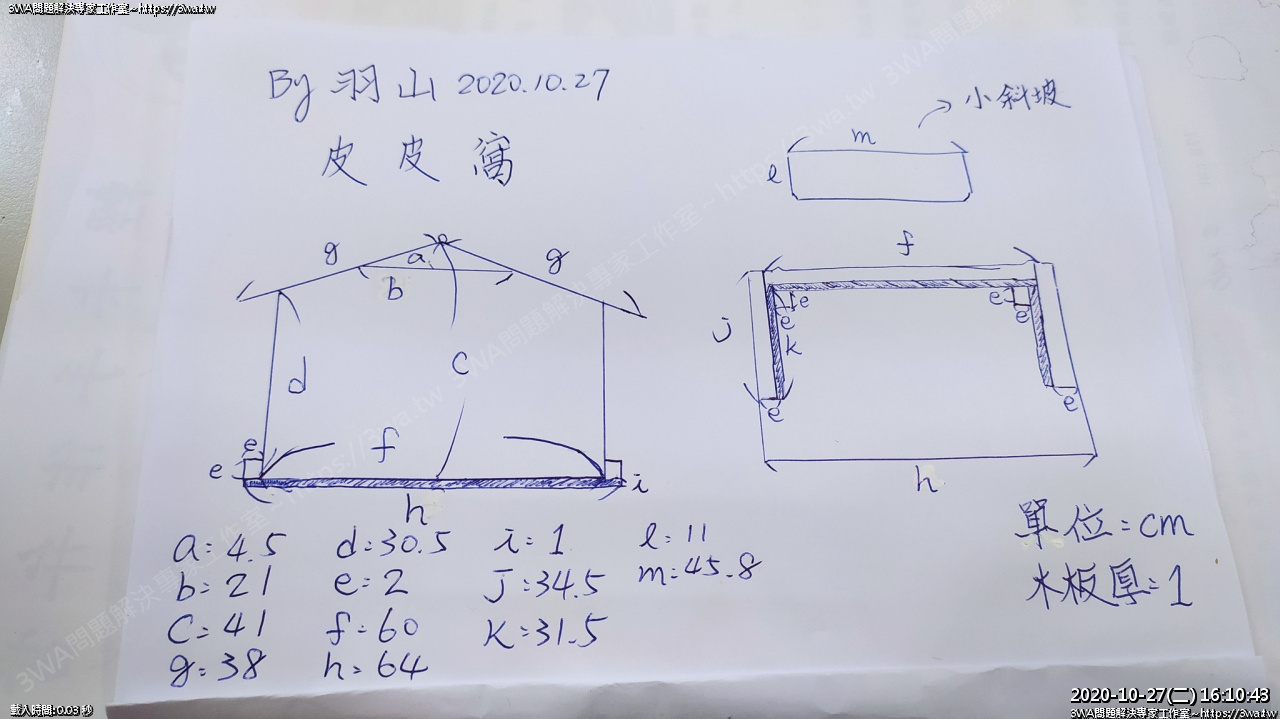 3WA問題解決專家工作室~https://3wa.tw
By 羽山 2020.10.27
皮皮窩
小斜坡
m
l
g
a
g
b
f
d
c
j
e
e
e
e
k
e
e
f
e
e
i
h
h
a=4.5 d=30.5 i=1 l=11
b=21 e=2 j=34.5 m=45.8
c=41 f=60 k=31.5
g=38 h=64
單位=cm
木板厚=1
載入時間:0.03 秒
2020-10-27(二) 16:10:43
3WA問題解決專家工作室~https://3wa.tw